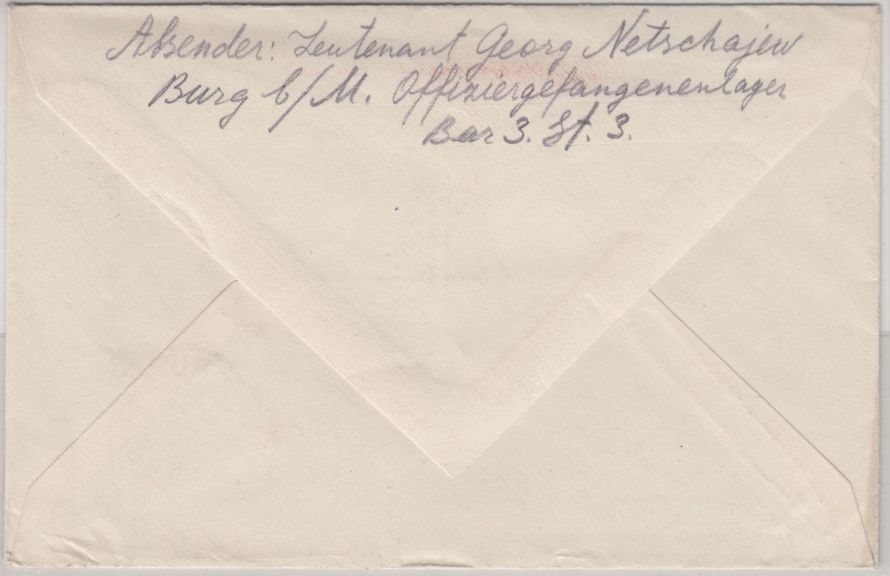 Absender: Leutenant Georg Netschajew
Burg b/M. Offiziergefangenenlager
Bar 3. St. 3.